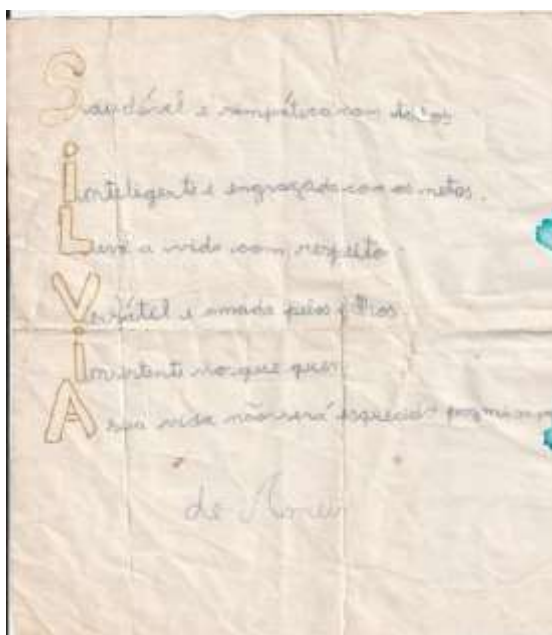 Saudável e simpática com todos
Inteligente e engraçada com os netos.
Leva a vida com respeito
Versátil e amada pelos filhos
Insistente no que quer
A sua vida não será esquecida por mim
de